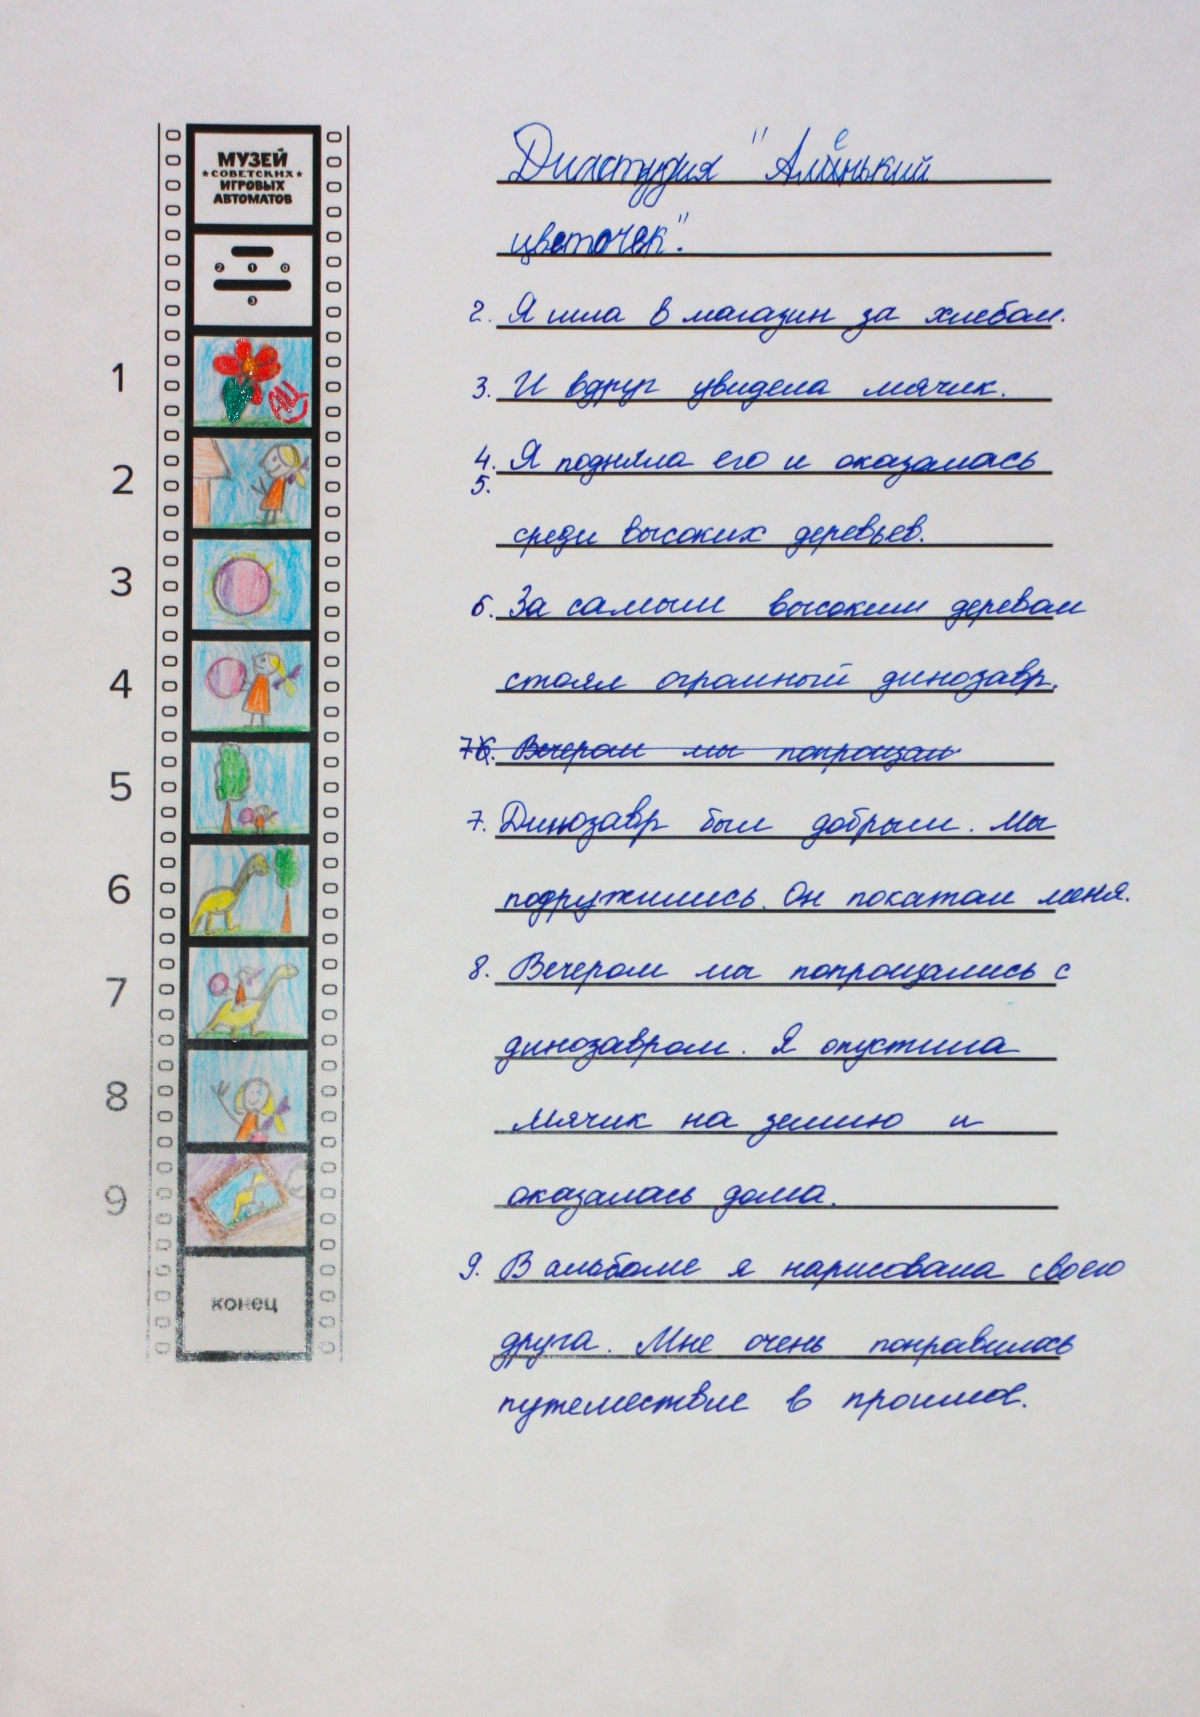 МУЗЕЙ
★СОВЕТСКИХ★
ИГРОВЫХ
АВТОМАТОВ
2 1 0
3
1
2
3
4
5
6
7
8
9
конец
"Аленький
цветочек".
2. Я шла в магазин за хлебом.
3. И вдруг увидела мячик.
4. Я подняла его и оказалась
5.
среди высоких деревьев.
6. За самым высоким деревом
стоял огромный динозавр.
Вечером мы попрощал
7. Динозавр был добрым. Мы
подружились. Он покатал меня.
8. Вечером мы попрощались с
динозавром. Я опустила
мячик на землю и
оказалась дома.
9. В альбоме я нарисовала своего
друга. Мне очень понравилось
путешествие в прошлое.